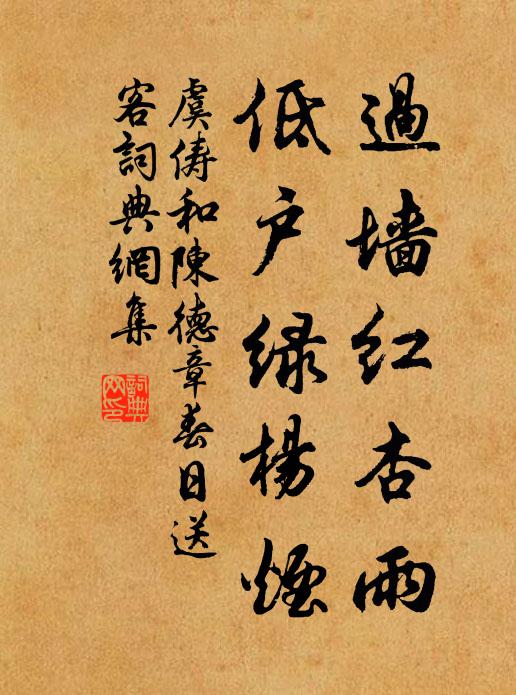 過墙红杏雨
低户绿楊煙
虞俦和陳德章春日送
客詞典網集
詞典网印